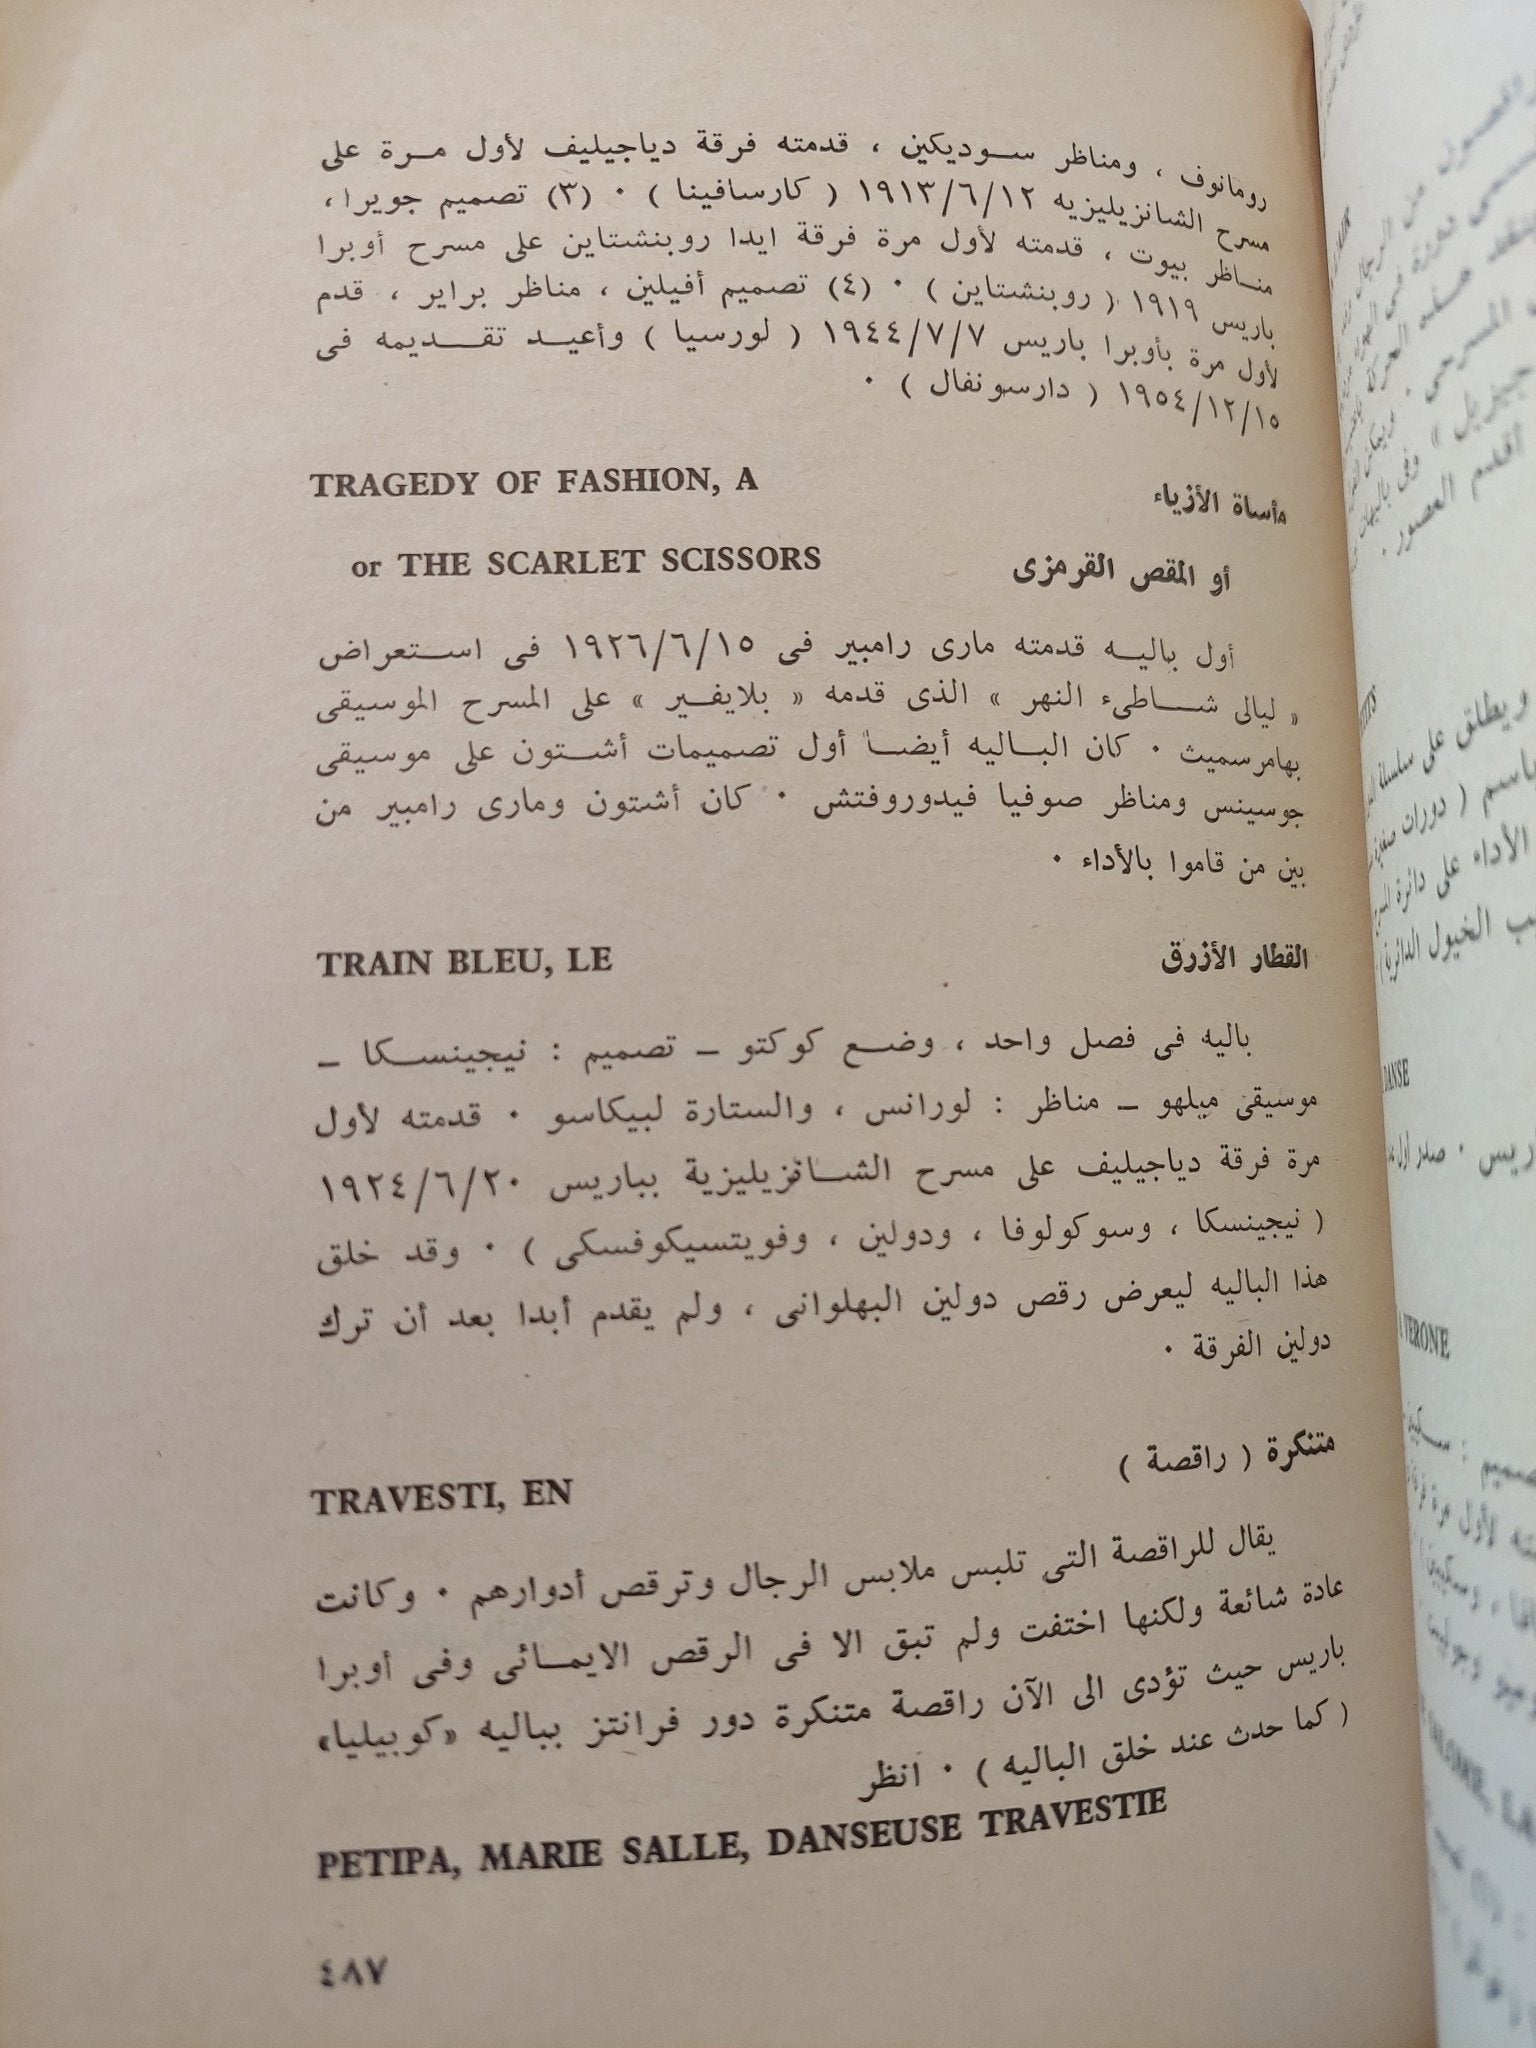 رومانوف ، ومناظر سوديكين ، قدمته فرقة دياجيليف لأول مرة على
مسرح الشانزيليزيه ١٩١٣/٦/١٢ ( كارسافينا ) ٠ (٣) تصميم جويرا ،
مناظر بيوت ، قدمته لأول مرة فرقة ايدا روبنشتاين على مسرح أوبرا
باريس ١٩١٩ ( روبنشتاين ) ٠ (٤) تصميم أفيلين ، مناظر براير ، قدم
لأول مرة بأوبرا باريس ١٩٤٤/٧/٧ ( لورسيا ) وأعيد تقديمه فى
١٩٥٤/١٢/١٥ ( دارسونفال ) ٠
TRAGEDY OF FASHION, A مأساة الأزياء
or THE SCARLET SCISSORS أو المقص القرمزى
أول باليه قدمته مارى رامبير فى ١٩٢٦/٦/١٥ فى استعراض
« ليالى شاطىء النهر » الذى قدمه « بلايفير » على المسرح الموسيقى
بهامرسميث ٠ كان الباليه أيضا أول تصميمات أشتون على موسيقى
جوسينس ومناظر صوفيا فيدوروفتش ٠ كان أشتون ومارى رامبير من
بين من قاموا بالأداء ٠
TRAIN BLEU, LE القطار الأزرق
باليه فى فصل واحد ، وضع كوكتو – تصميم : نيجينسكا –
موسيقى ميلهو – مناظر : لورانس ، والستارة لبيكاسو ٠ قدمته لأول
مرة فرقة دياجيليف على مسرح الشانزيليزية بباريس ١٩٢٤/٦/٢٠
( نيجينسكا ، وسوكولوفا ، ودولين ، وفويتسيكوفسكى ) ٠ وقد خلق
هذا الباليه ليعرض رقص دولين البهلوانى ، ولم يقدم أبدا بعد أن ترك
دولين الفرقة ٠
TRAVESTI, EN متنكرة ( راقصة )
يقال للراقصة التى تلبس ملابس الرجال وترقص أدوارهم ٠ وكانت
عادة شائعة ولكنها اختفت ولم تبق الا فى الرقص الايمائى وفى أوبرا
باريس حيث تؤدى الى الآن راقصة متنكرة دور فرانتز بباليه «كوبيليا»
( كما حدث عند خلق الباليه ) ٠ انظر
PETIPA, MARIE SALLE, DANSEUSE TRAVESTIE
٤٨٧
DANSE
VERONE